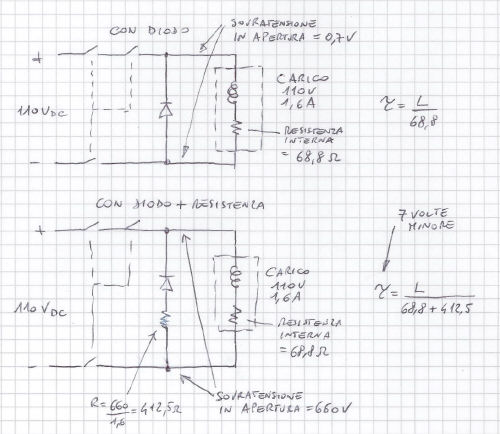 CON DIODO
SOVRATENSIONE
IN APERTURA = 0,7V
+
110VDC
-
CARICO
110V
1,6A
RESISTENZA
INTERNA
= 68,8 Ω
τ = L
68,8
CON DIODO + RESISTENZA
7 VOLTE
MINORE
+
110VDC
-
CARICO
110V
1,6A
RESISTENZA
INTERNA
= 68,8 Ω
τ = L
68,8 + 412,5
R = 660 = 412,5 Ω
1,6
SOVRATENSIONE
IN APERTURA = 660V